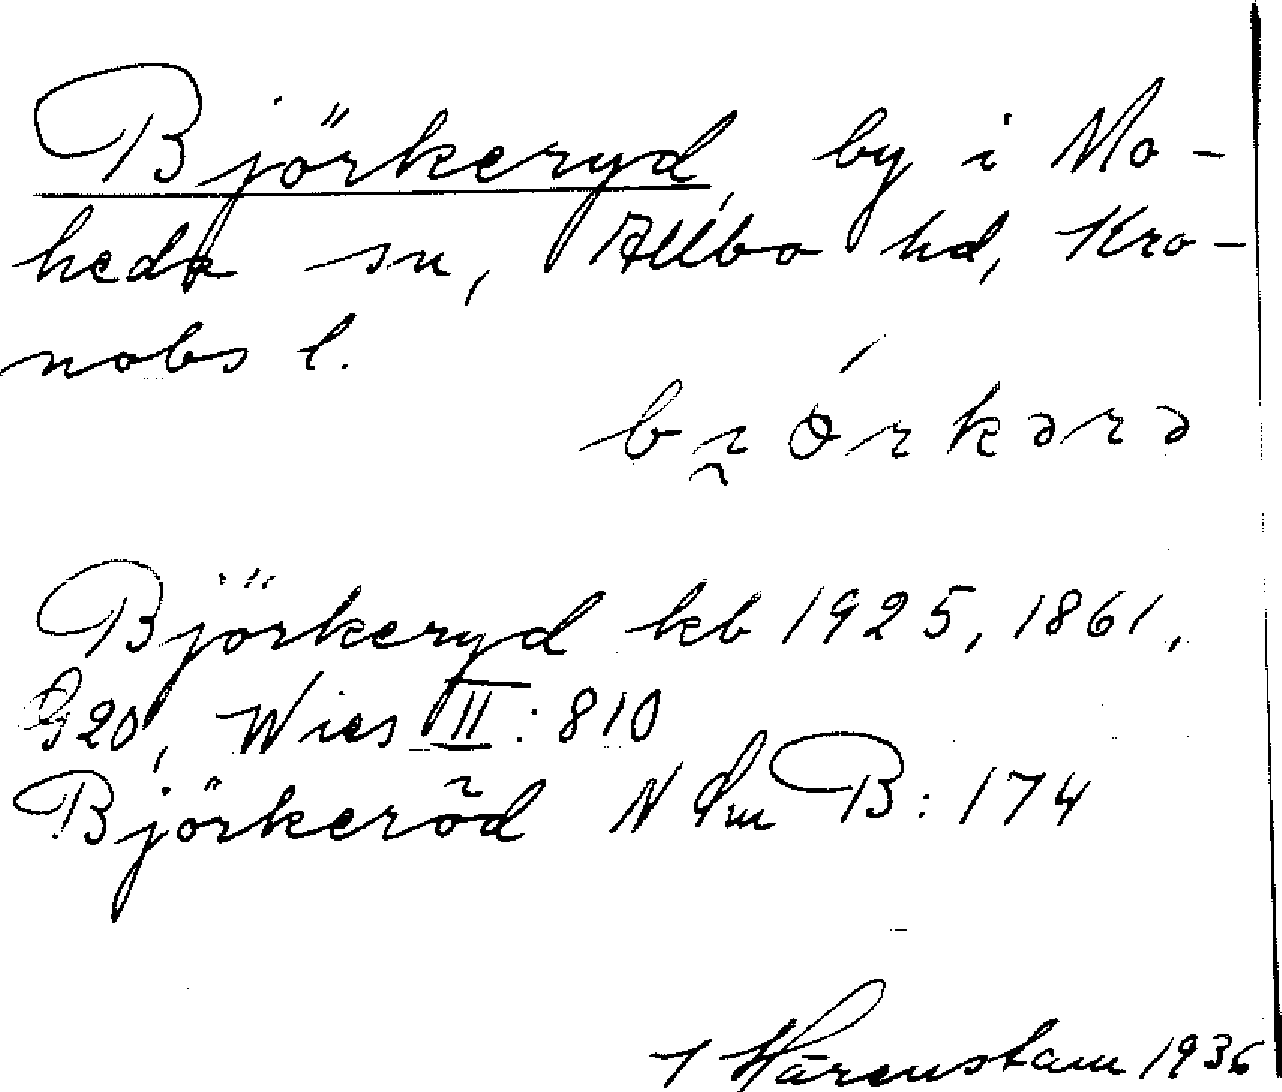 Björkeryd, by i Mo-
heda sn, Allbo hd, Kro-
nobs l.
Björkeryd kb 1925, 1861,
G20, Wies II: 810
Björkeröd N Dm B: 174
Härenstam 1936